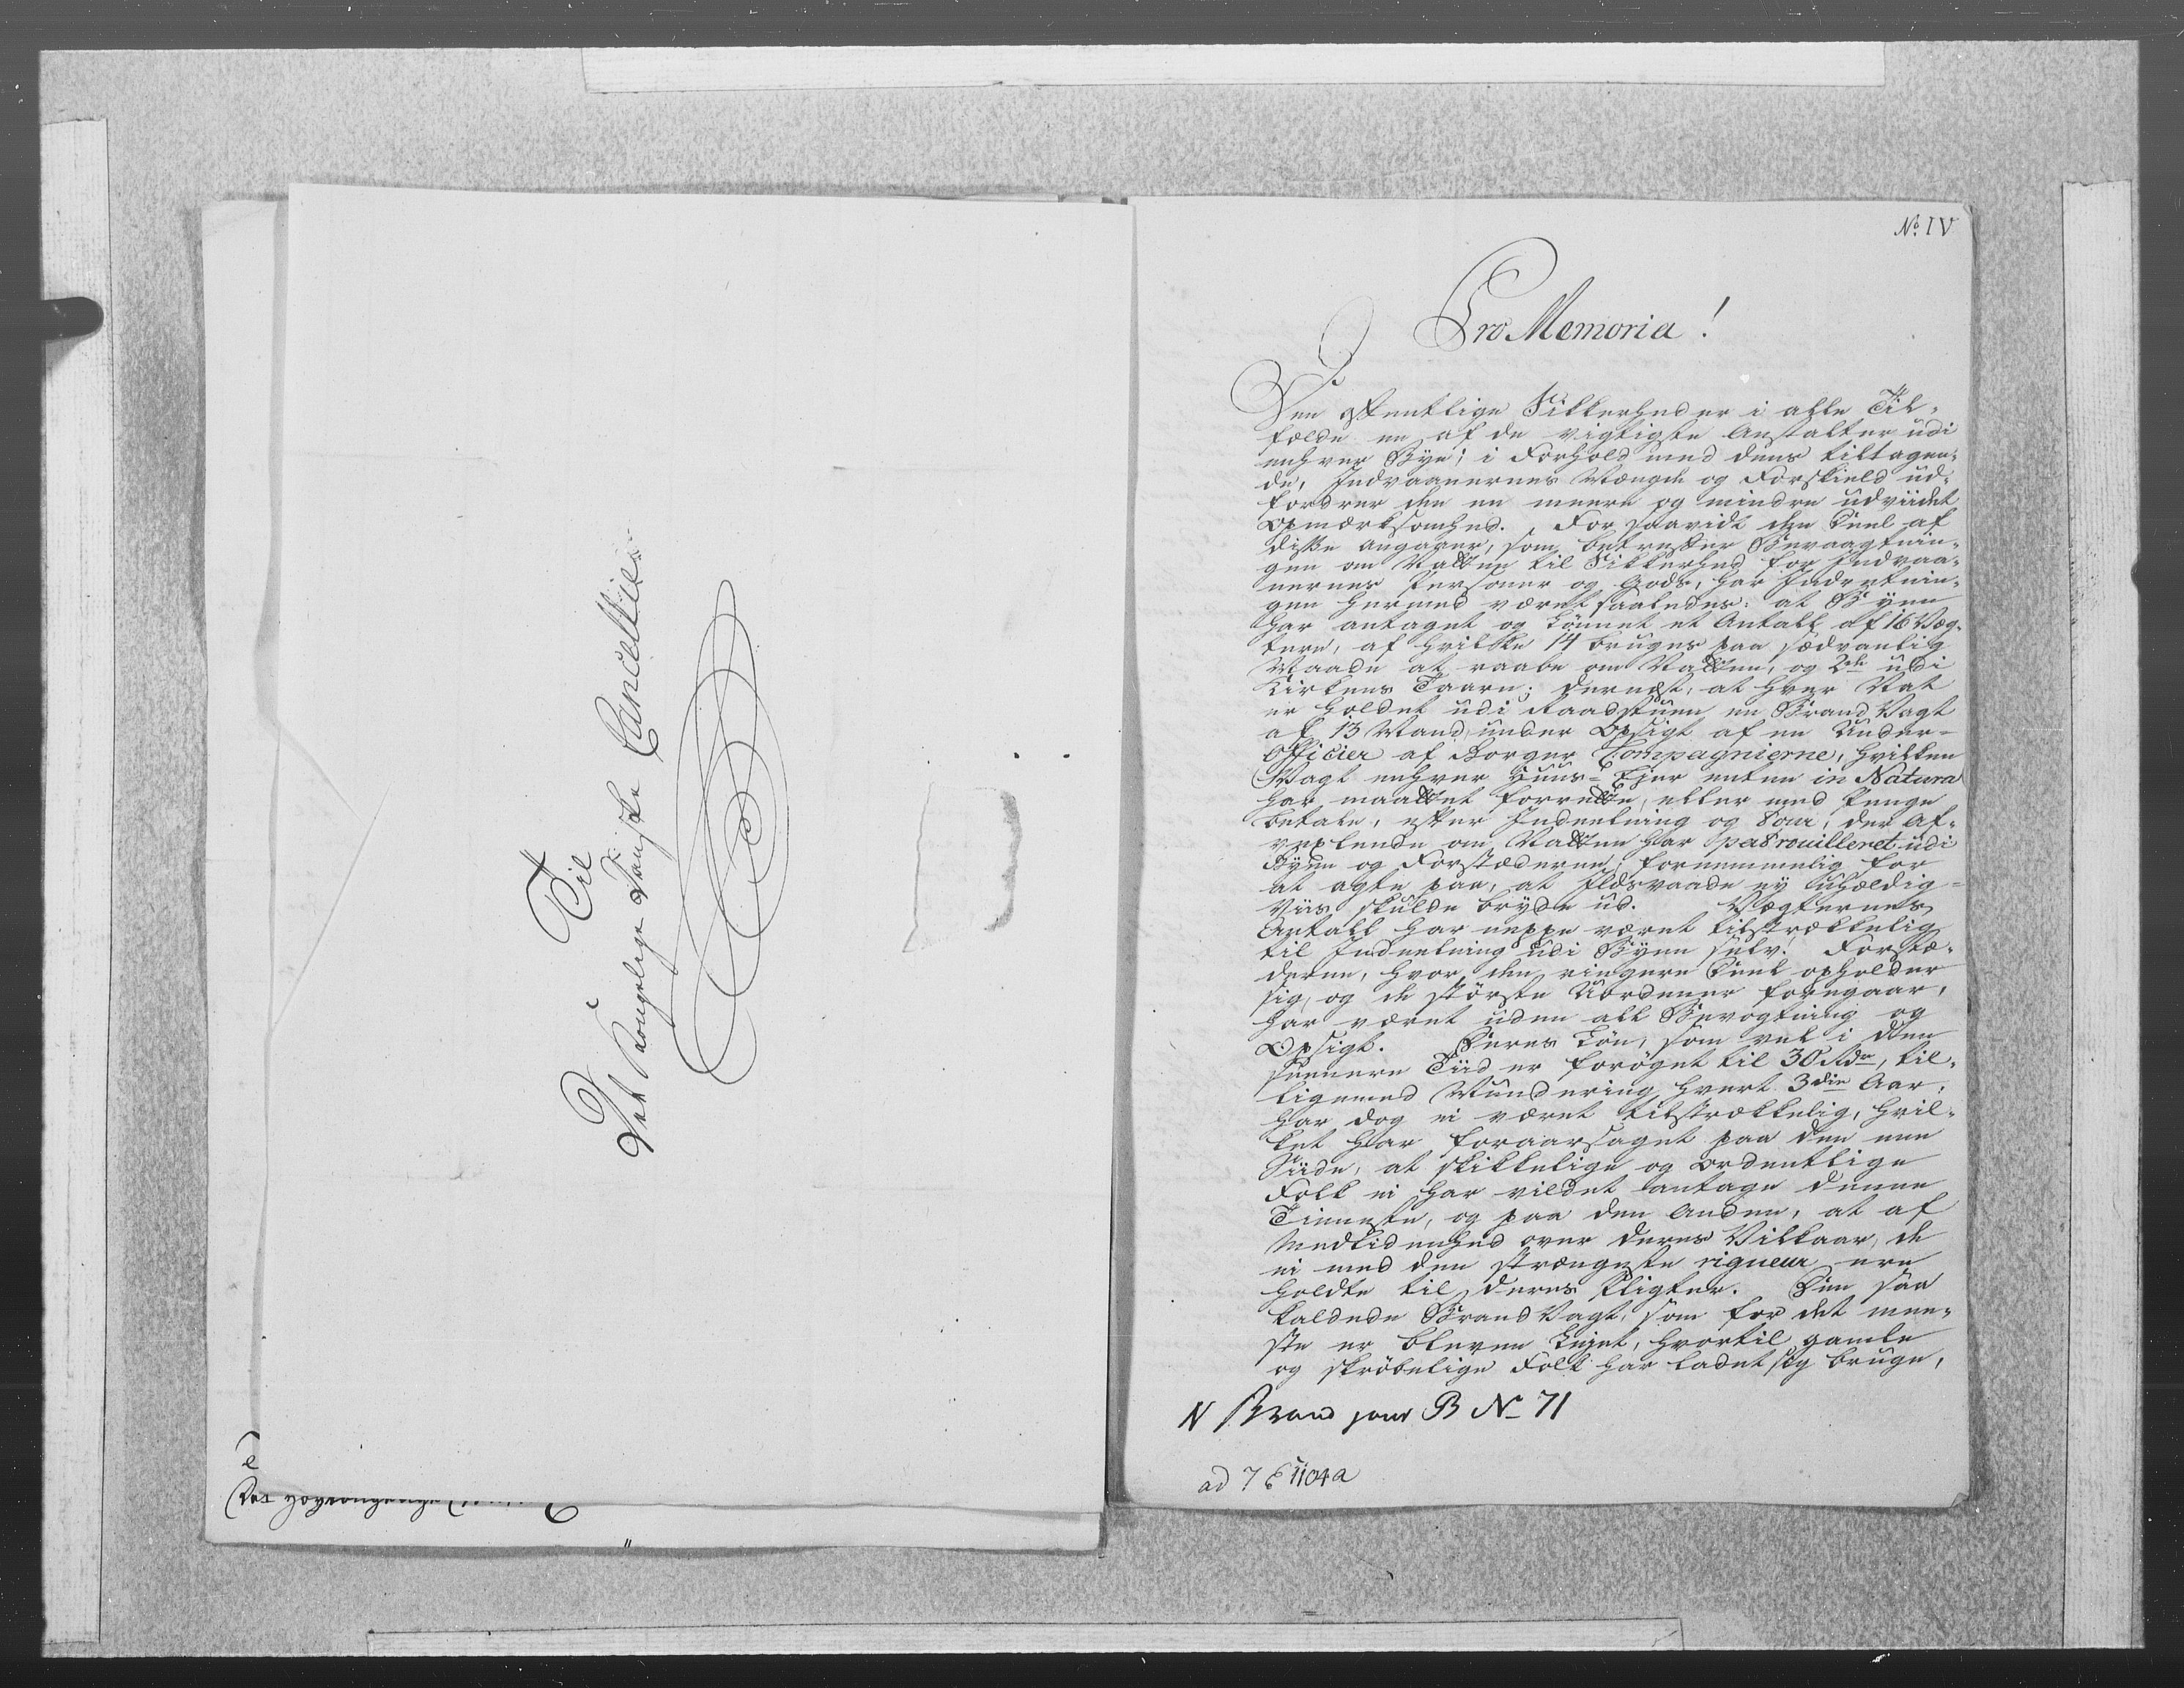 Til
Det Kongelige Danske Cancellie
No. IV
Pro Memoria!
Den offentlige Sikkerhed er i alle Til-
fælde en af de vigtigste Anstalter udi
enhver Bye; i Forhold med dens tiltagen-
de, Indvaanernes Mængde og Forskield ud-
fordrer den en meere og mindre udviidet
Opmærksomhed. For saavidt den Deel af
disse angaaer, som betreffer Bevaagtnin-
gen om Natten til Sikkerhed for Indvaa-
nernes Personer og Gods, har Indretnin-
gen hermed været saaledes: at Byen
har antaget og lønnet et Antall af 16 Væg-
tere, af hvilke 14 bruges paa sædvanlig
Maade at raabe om Natten, og 2de udi
Kirkens Taarn; dernæst, at hver Nat
er holdet udi Raadstuen en Brand Vagt
af 13 Mand, under Opsigt af en Under-
Officier af Borger Compagnierne, hvilken
Vagt enhver Huus-Ejer enten in Natura
har maattet forrette, eller med Penge
betale, efter Indeelning og Tour, der af-
vexlende om Natten har patrouilleret udi
Byen og Forstæderne, fornemmelig for
at agte paa, at Ildsvaade ey uhældig-
Viis skulde bryde ud. Vægternes
Antall har neppe været tilstrækkelig
til Indeelning udi Byen selv. Forstæ-
derne, hvor den ringere Deel opholder
sig, og de største Uordener foregaar,
har været uden all Bevogtning og
Opsigt. Deres Løn, som vel i den
seenere Tiid er forøget til 30 Rdr, til-
ligemed Mundering hvert 3die Aar,
har dog ei været tilstrækkelig, hvil-
ket har foraarsaget paa den eene
Siide, at skikkelige og ordentlige
Folk ei har vildet antage denne
Tieneste, og paa den Anden, at af
Medlidenhed over deres Vilkaar, de
ei med den strængeste rigueur ere
holdte til deres Pligter. Den saa
kaldede Brand Vagt, som for det mee-
ste er bleven Lejet, hvortil gamle
og skrøbelige Folk har ladet sig bruge,
N Brand jour B No 71
ad 7 1104a